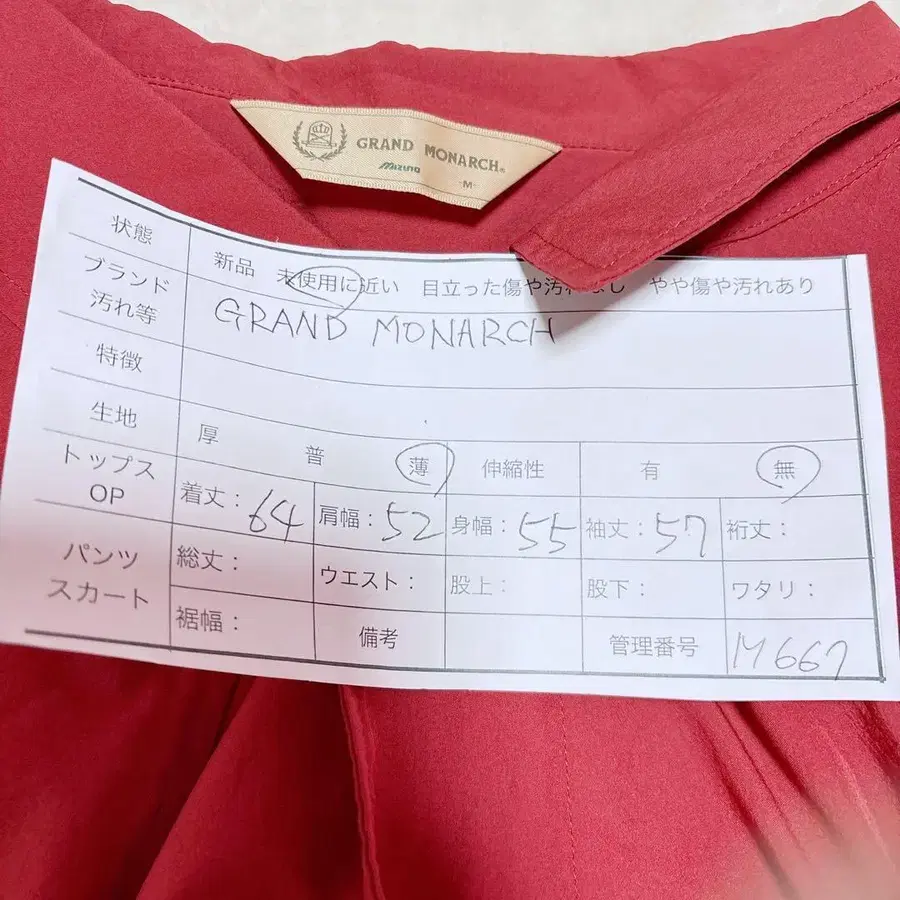 GRAND MONARCH®
MIZUNO
-M-
状態 新品 未使用に近い 目立った傷や汚れなし やや傷や汚れあり
ブランド
汚れ等 GRAND MONARCH
特徴
生地 厚 普 薄 伸縮性 有 無
トップス
OP 着丈:64 肩幅:52 身幅:55 袖丈:57 裄丈:
パンツ
スカート 総丈: ウエスト: 股上: 股下: ワタリ:
裾幅: 備考 管理番号 M667